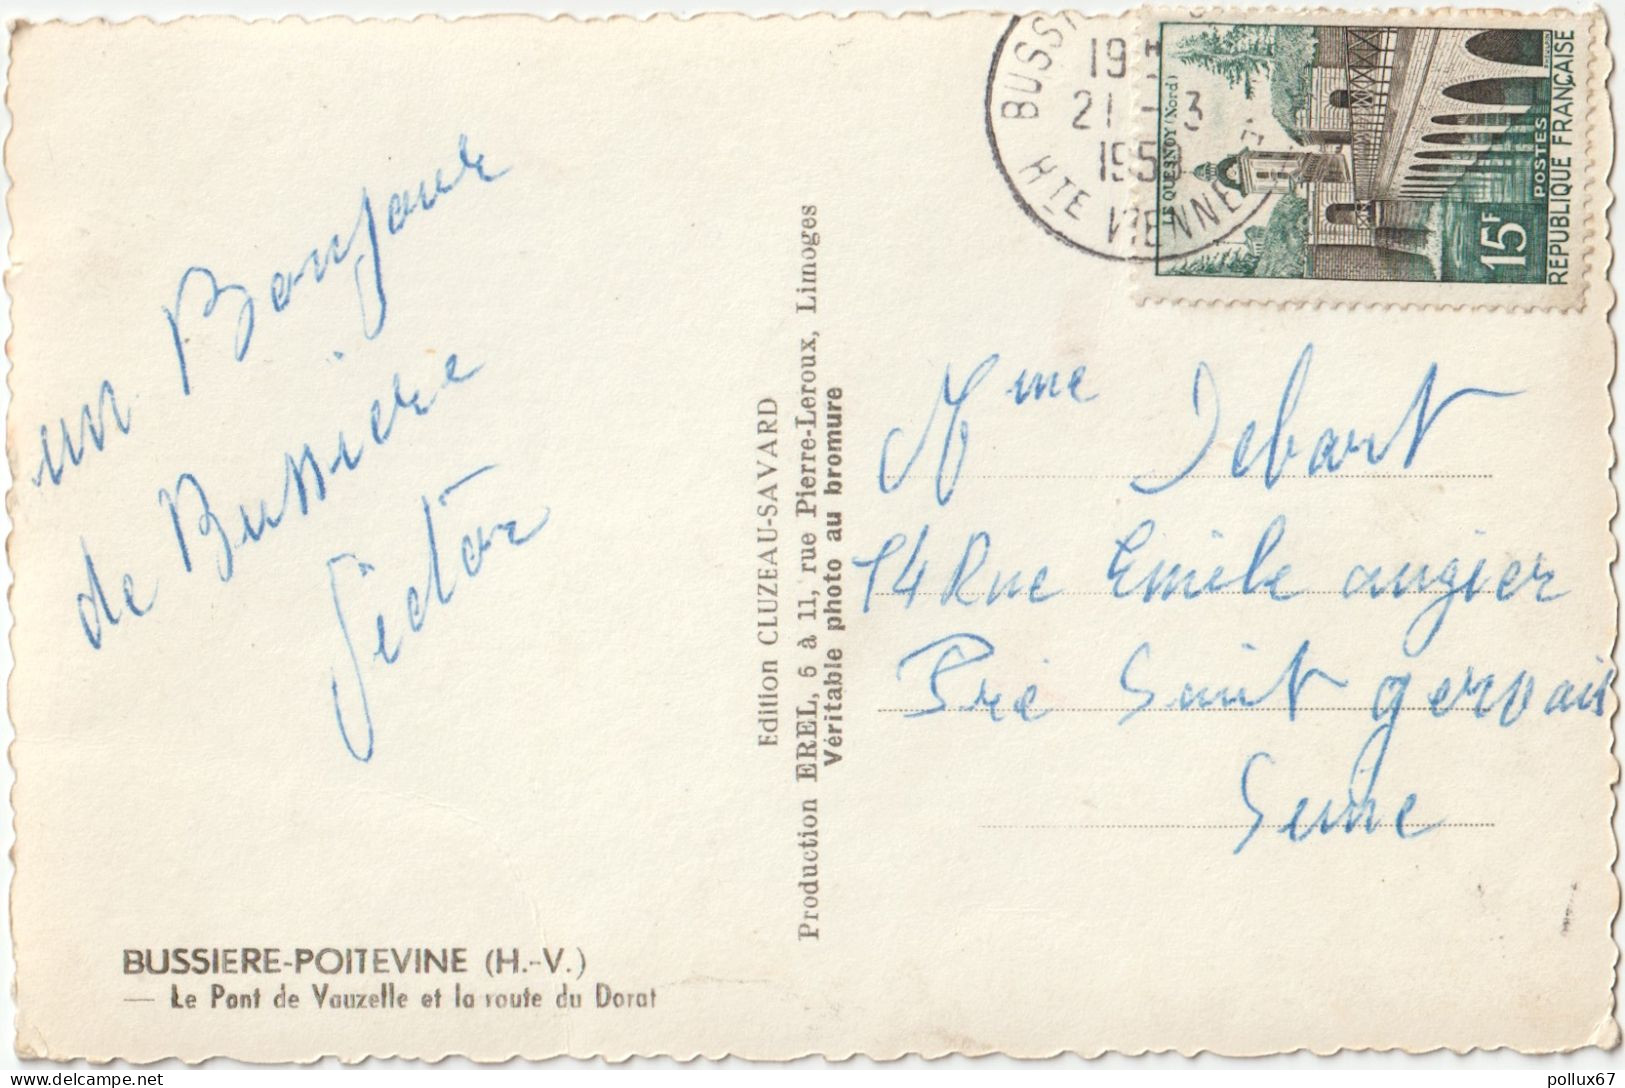 un Bonjour
de Bussière
Victor
BUSSIERE-POITEVINE (H.-V.)
— Le Pont de Vauzelle et la route du Dorat
Edition CLUZEAU-SAVARD
Production EREL, 6 à 11, rue Pierre-Leroux, Limoges
Véritable photo au bromure
19 H
21 - 3
HTE VIENNE
LE QUESNOY (Nord)
POSTES
15F
REPUBLIQUE FRANÇAISE
Mme Debart
14 Rue Emile augier
Pré Saint gervais
Seine
pollux67